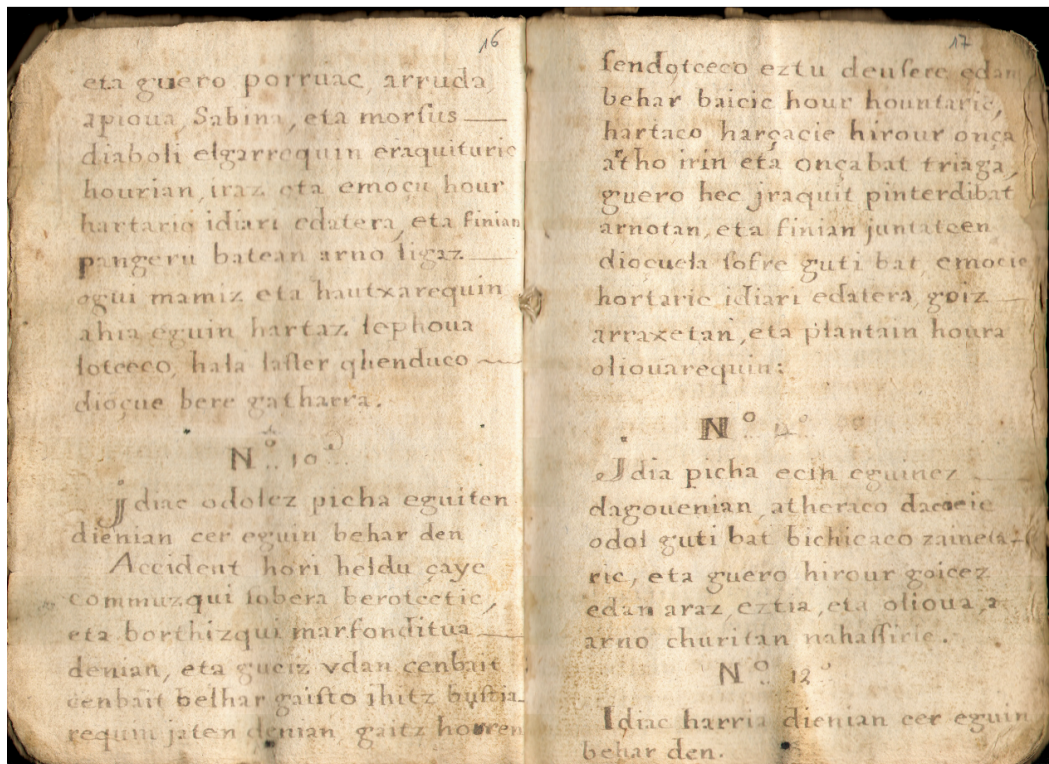 16
eta guero porruac, arruda
apioua, Sabina, eta morſus
diaboli elgarrequin eraquituric
hourian, iraz eta emoçu hour
hartaric idiari edatera, eta finian
pangeru batean arno ligaz
ogui mamiz eta hautxarequin
ahia eguin hartaz lephoua
lotceco, hala laſter qhenduco
dioçue bere gatharra.
N.º 10
Jdiac odolez picha eguiten
dienian cer eguin behar den
Accident hori heldu çaye
commuzqui sobera berotcetic,
eta borthizqui marfonditua
denian, eta guciz vdan cenbait
cenbait belhar gaiſto jhitz buſtia-
requin jaten denian, gaitz horren
17
ſendotceco eztu deuſere edan
behar baicic hour hountaric,
hartaco harçacie hirour onça
atho irin eta onçabat triaga,
guero hec jraquit pinterdibat
arnotan, eta finian juntatcen
dioçuela ſofre guti bat, emocie
hortaric idiari edatera, goiz
arraxetan, eta plantain houra
oliouarequin:
N.º
Jdia picha ecin eguinez
dagouenian, atheraco daoeie
odol guti bat bichicaco
ric, eta guero hirour goicez
edan araz, eztia, eta olioua,
arno churitan nahaſſiric.
N.º 12
Idiac harria dienian cer eguin
behar den.